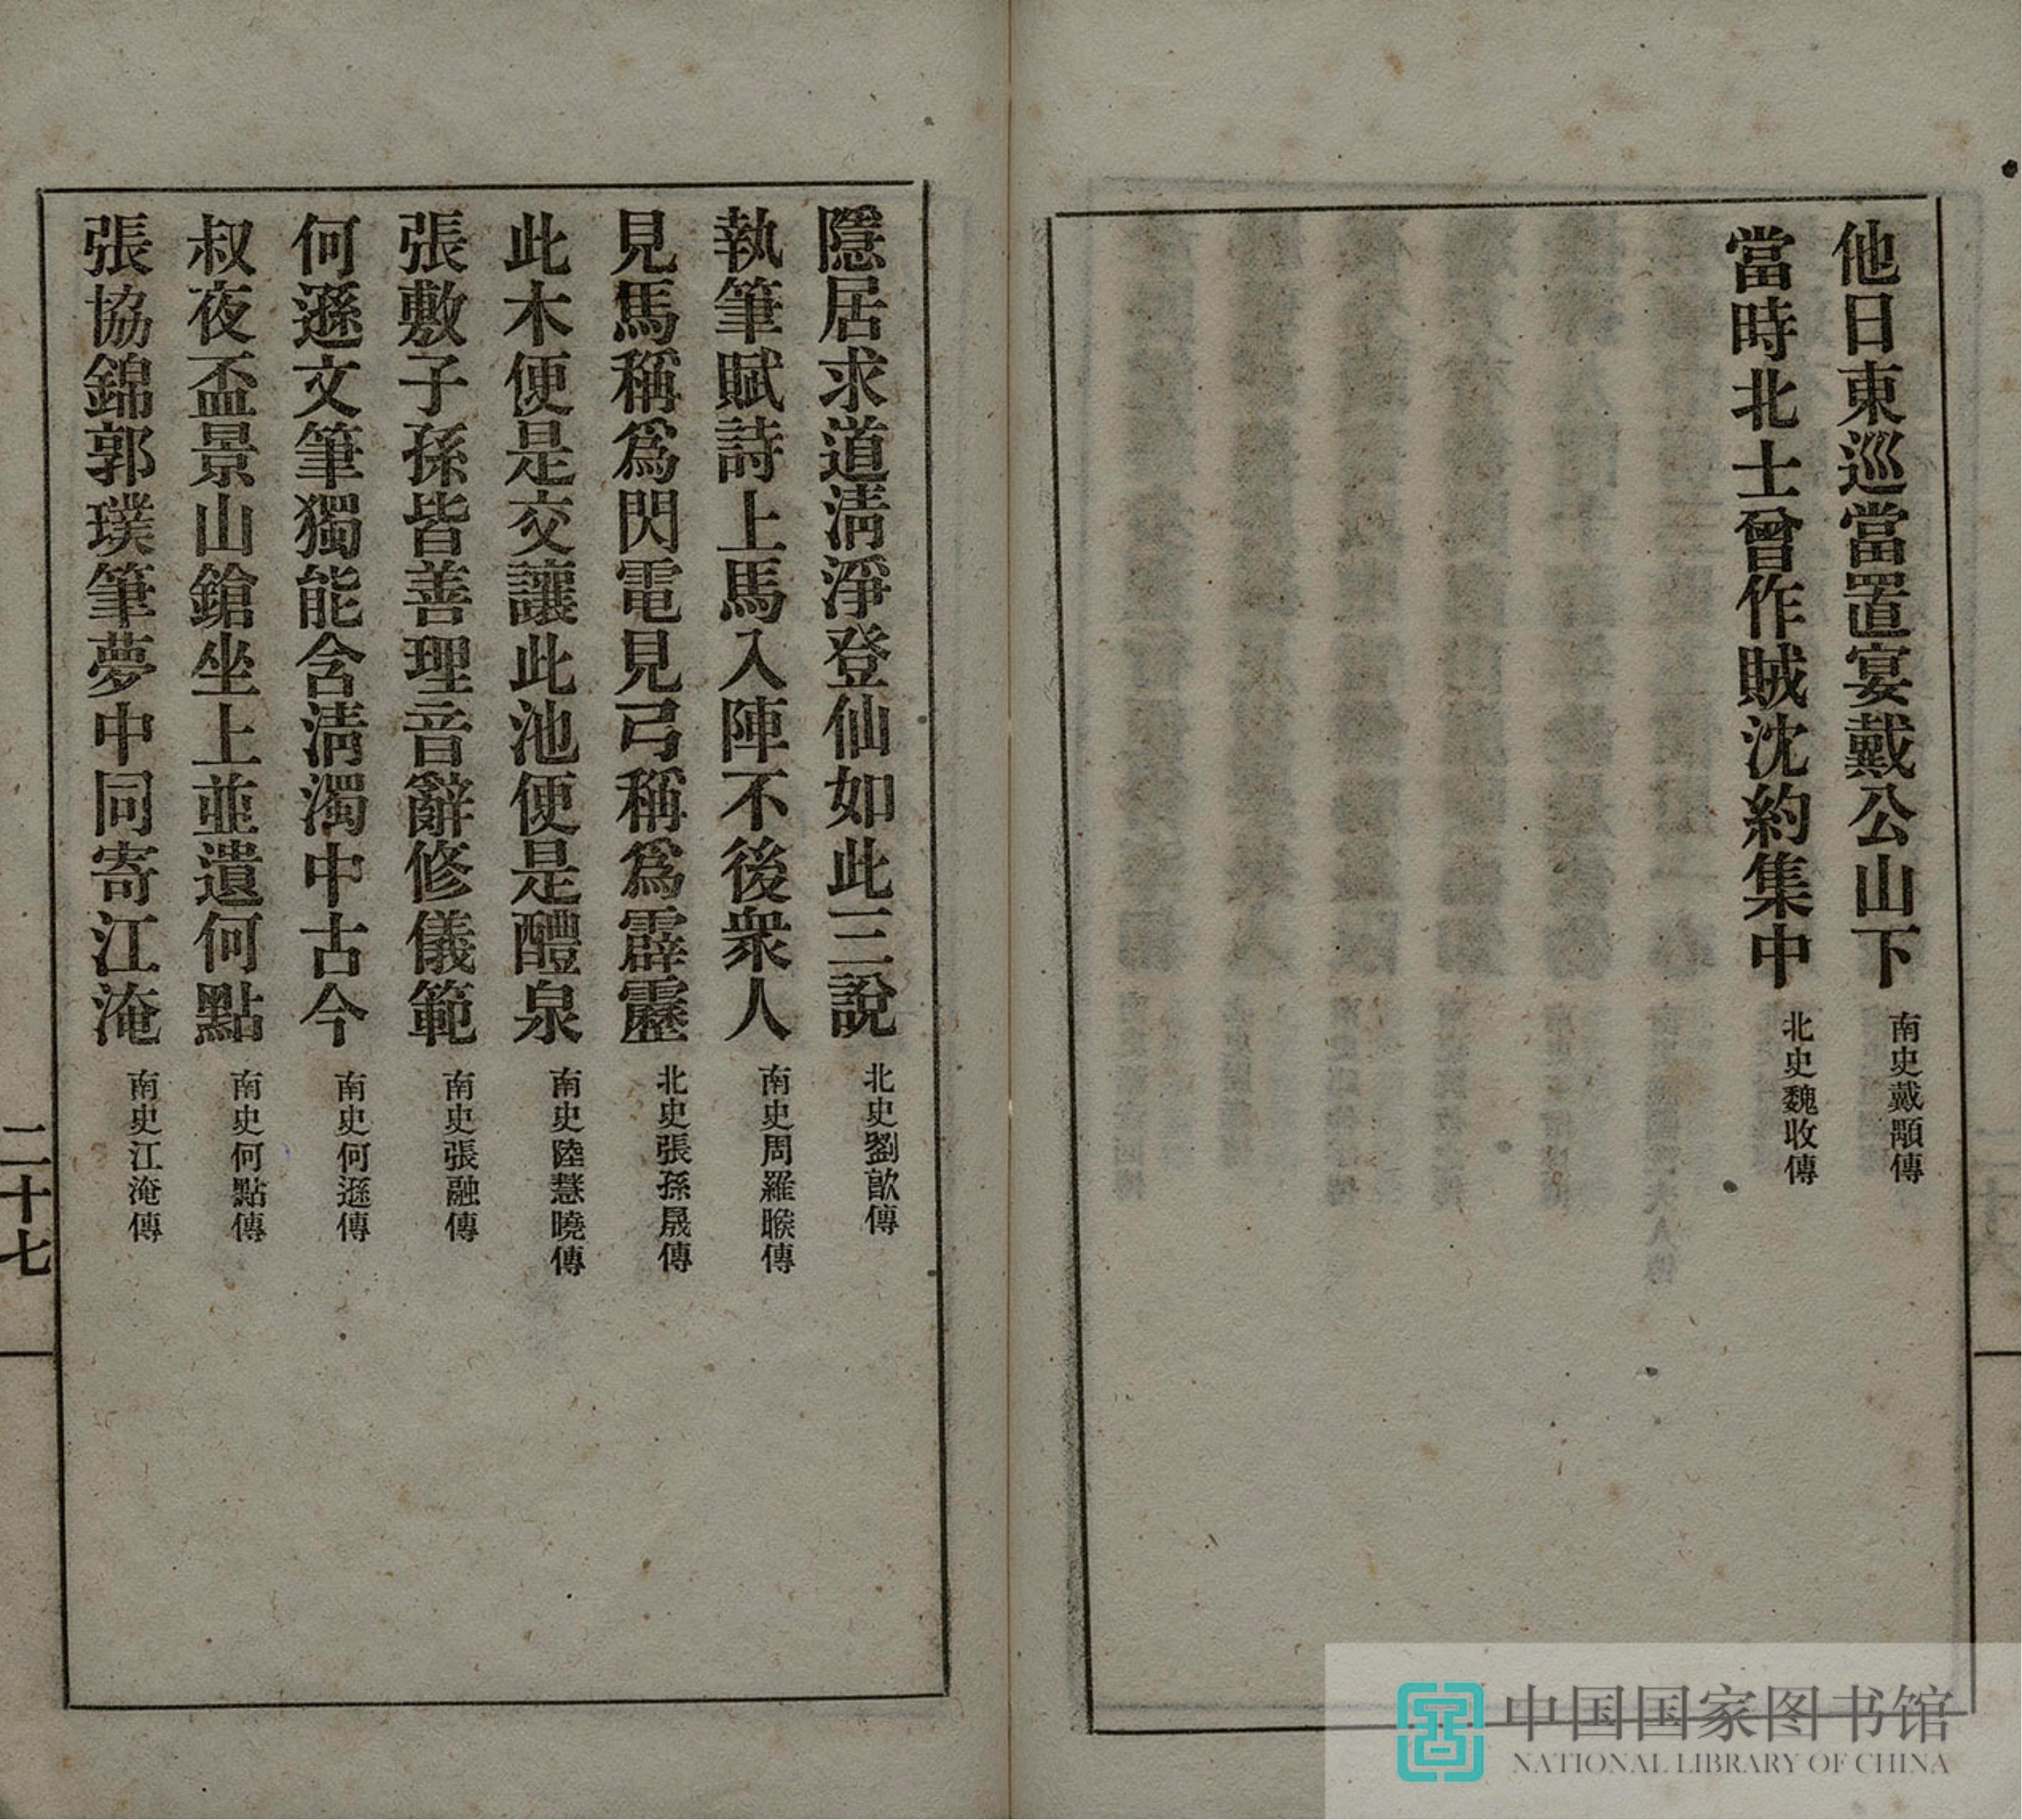 他日東巡當置宴戴公山下 南史戴顒傳
當時北士曾作賊沈約集中 北史魏收傳
隱居求道淸淨登仙如此三說 北史劉歊傳
執筆賦詩上馬入陣不後衆人 南史周羅睺傳
見馬稱爲閃電見弓稱爲霹靂 北史張孫晟傳
此木便是交讓此池便是醴泉 南史陸慧曉傳
張敷子孫皆善理音辭修儀範 南史張融傳
何遜文筆獨能含淸濁中古今 南史何遜傳
叔夜盃景山鎗坐上並遺何點 南史何點傳
張協錦郭璞筆夢中同寄江淹 南史江淹傳
二十七
中国国家图书馆
NATIONAL LIBRARY OF CHINA